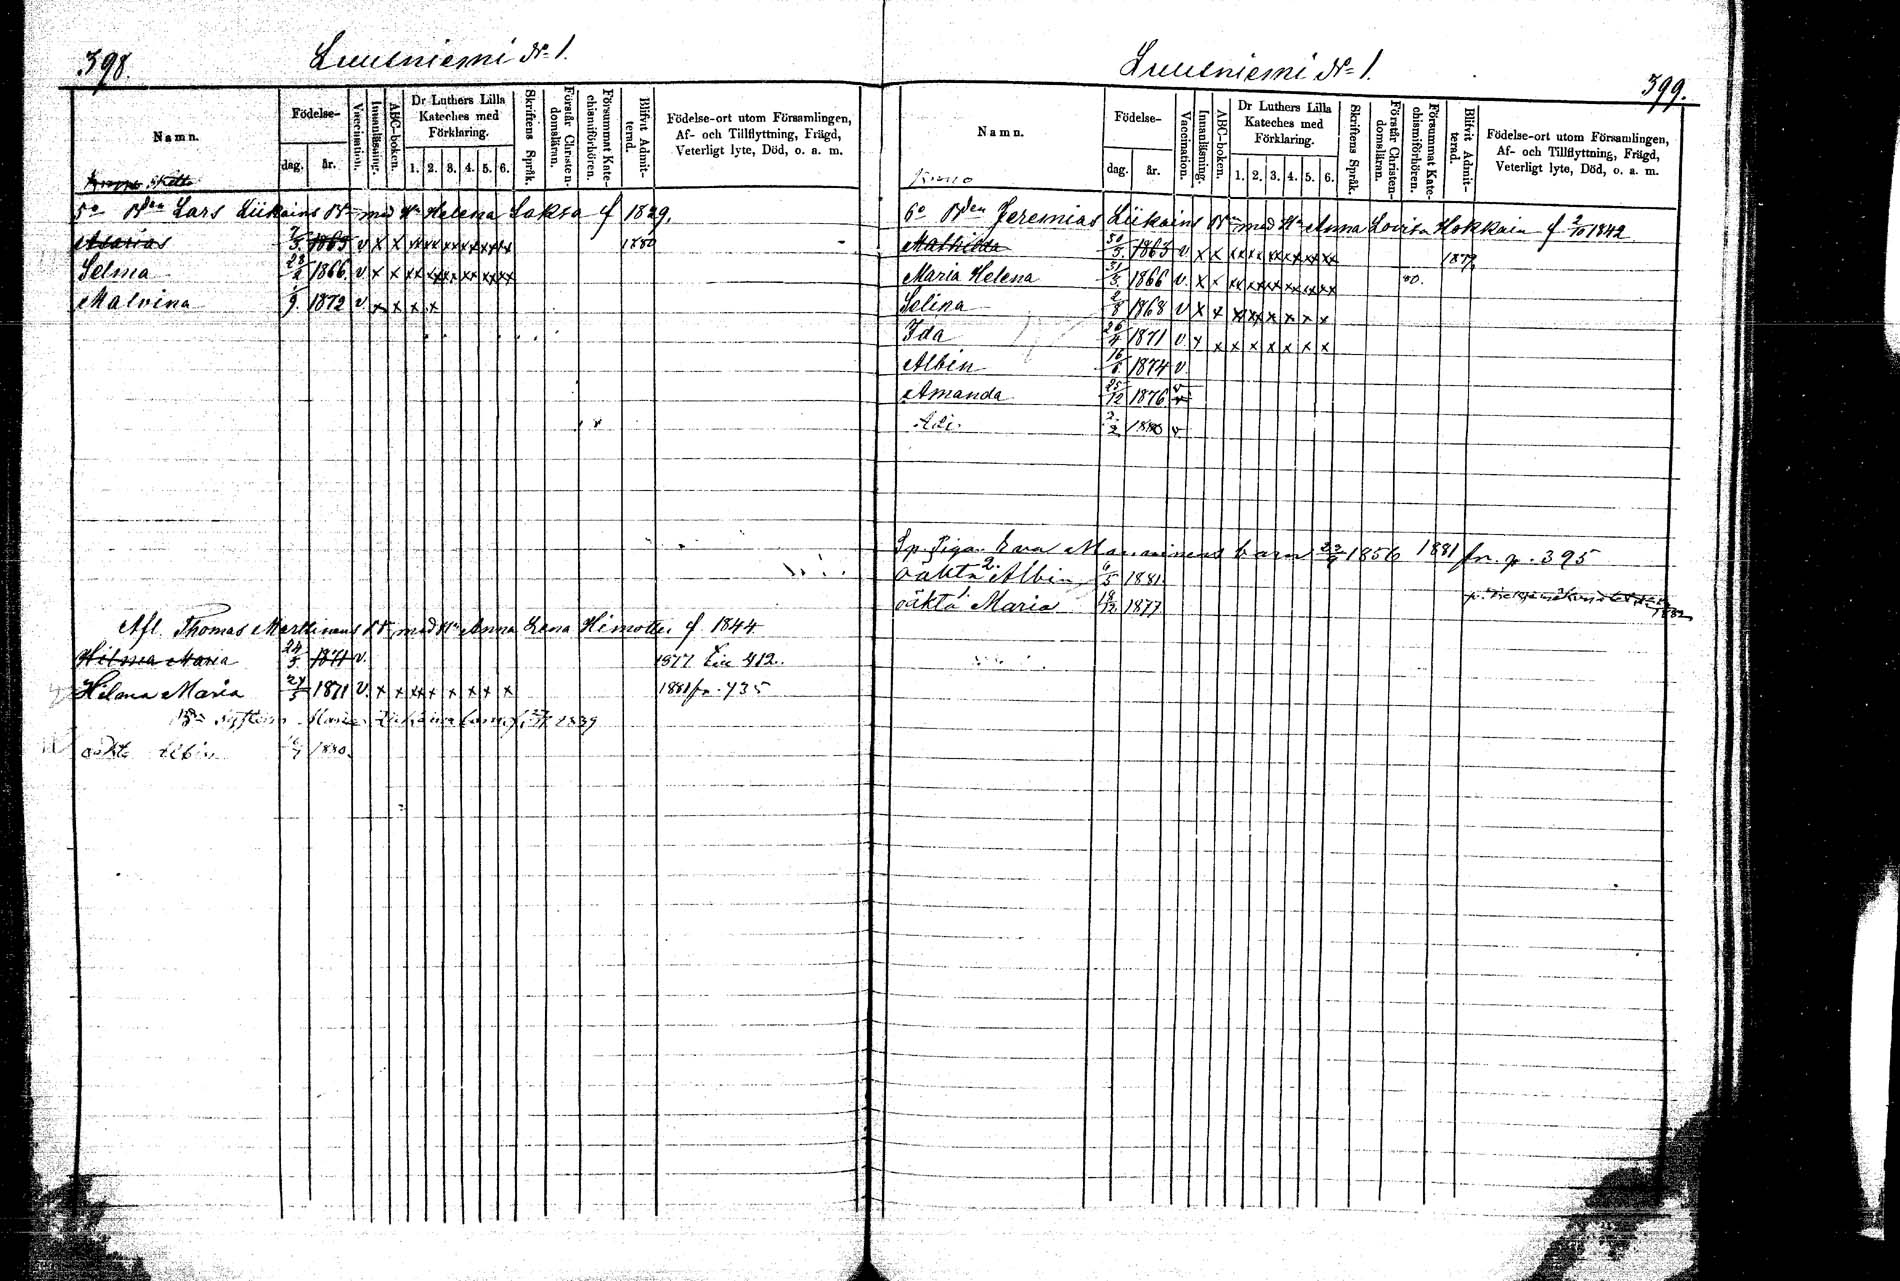 398.
Luusniemi No 1.
Namn.
Födelse-
dag. år.
Vaccination.
Innanläsning.
ABC-boken.
Dr Luthers Lilla Kateches med Förklaring.
1. 2. 3. 4. 5. 6.
Skriftens Språk.
Förstår Christendomsläran.
Försummat Katechismiförhören.
Blifvit Admitterad.
Födelse-ort utom Församlingen, Af- och Tillflyttning, Frägd, Veterligt lyte, Död, o. a. m.
5o Bden Lars Liikains Bn med Hn Helena Laksa f 1829.
Asarias 7/3 1863 v x x xx xx xx xx xx xx 1880
Selma 23/2 1866. v x x xx xx xx xx xx xx
Malvina 1/9. 1872 v x x x x
Afl. Thomas Marttinens Bn med Hn Anna Lena Himottu f 1844
Hilma Maria 24/5 1871 v. 1877 412.
Hilma Maria 24/5 1871 v. x x xx x x x x x 1881 fr. 735
Maria 1839
oäkta Albin 1880.
Luusniemi No 1.
399.
Namn.
Födelse-
dag. år.
Vaccination.
Innanläsning.
ABC-boken.
Dr Luthers Lilla Kateches med Förklaring.
1. 2. 3. 4. 5. 6.
Skriftens Språk.
Förstår Christendomsläran.
Försummat Katechismiförhören.
Blifvit Admitterad.
Födelse-ort utom Församlingen, Af- och Tillflyttning, Frägd, Veterligt lyte, Död, o. a. m.
6o Bden Jeremias Liikains Bn med Hn Anna Lovisa Hokkain f 2/10 1842
Mathilda 30/3. 1863 v. x x xx xx xx xx xx xx 1879
Maria Helena 31/3. 1866 v. x x xx xx xx xx xx xx 80.
Selina 2/8 1868 v x x xx xx x x x x
Ida 26/4 1871 v. x x x x x x x x
Albin 16/6 1874 v
Amanda 25/12 1876. v
2/2 1880 v.
Sp. Piga Eva Manninens barn 22/9 1856 1881 fr. p. 395
oäkta 2. Albin 6/5 1881.
oäkta Maria 18/12 1877 1882